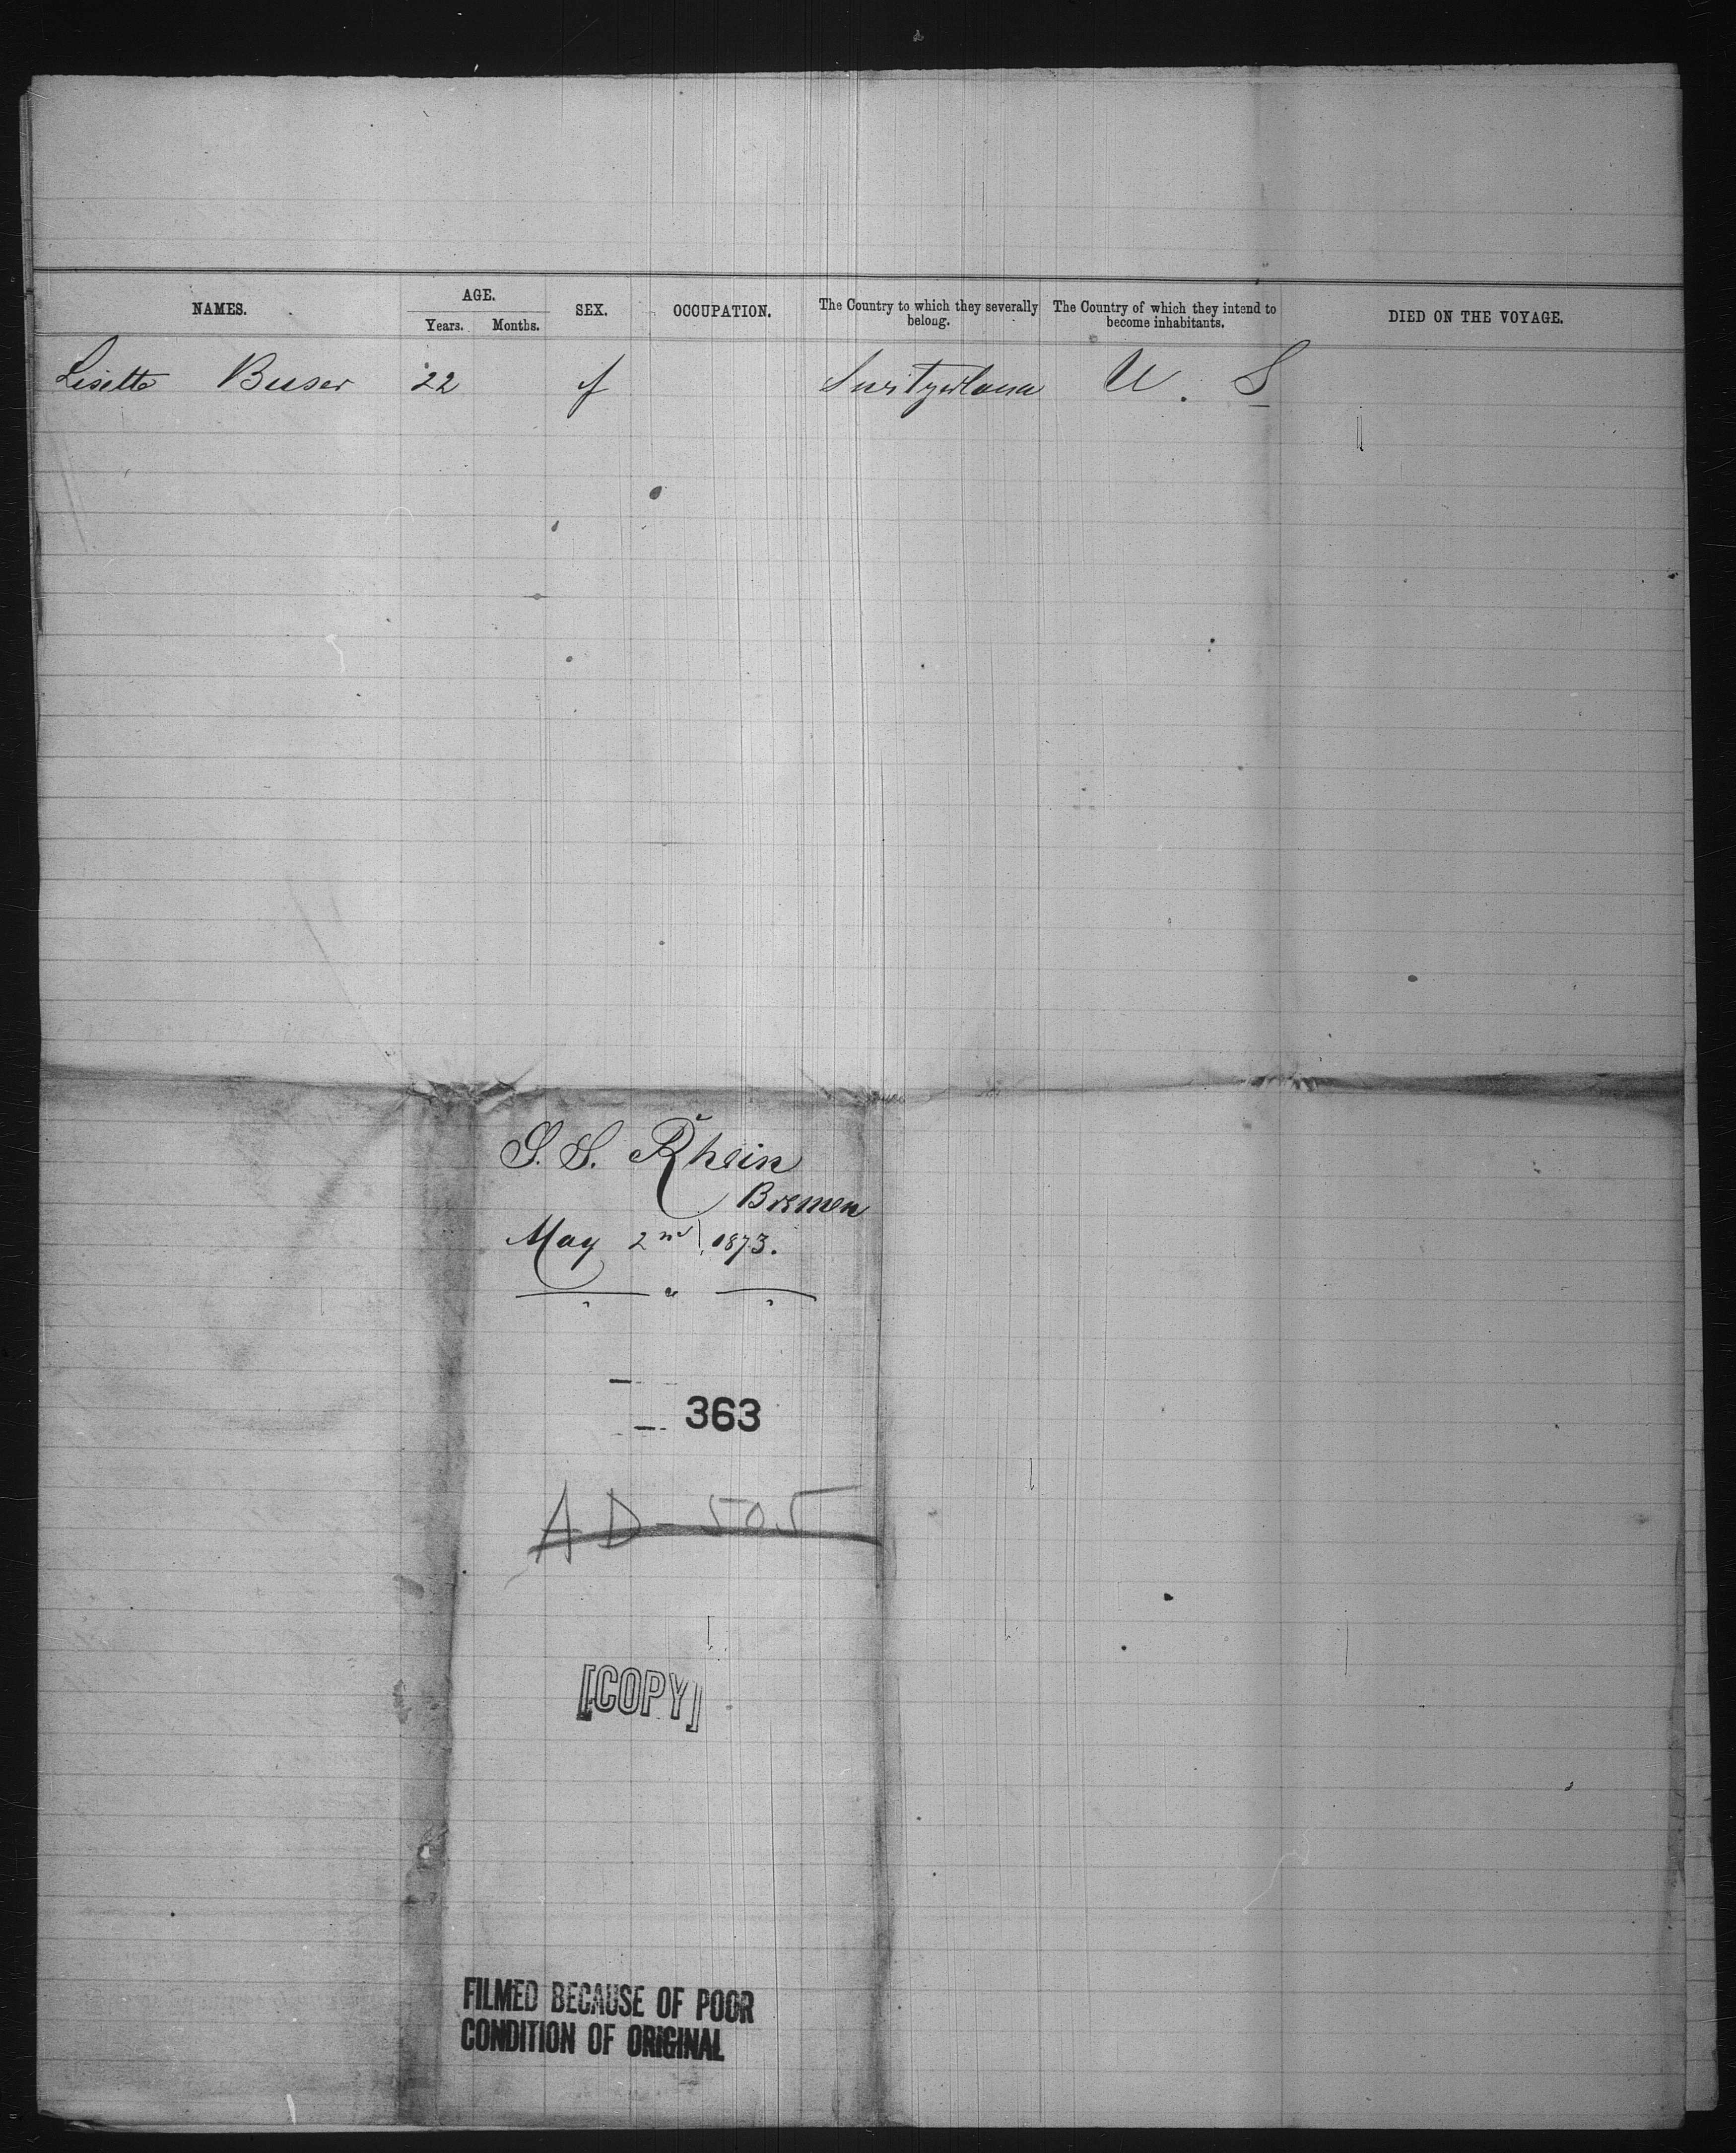 NAMES. AGE. SEX. OCCUPATION. The Country to which they severally belong. The Country of which they intend to become inhabitants. DIED ON THE VOYAGE.
Years. Months.
Lisette Buser 22 f Switzerland U. S
S. S. Rhein
Bremen
May 2nd, 1873.
363
AD-505
[COPY]
FILMED BECAUSE OF POOR
CONDITION OF ORIGINAL